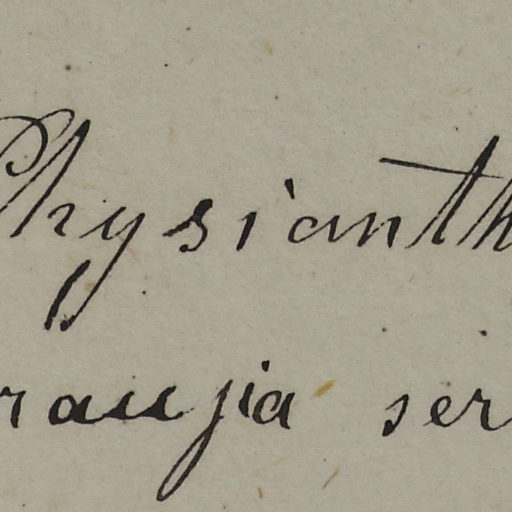 Physianth
rauja ser